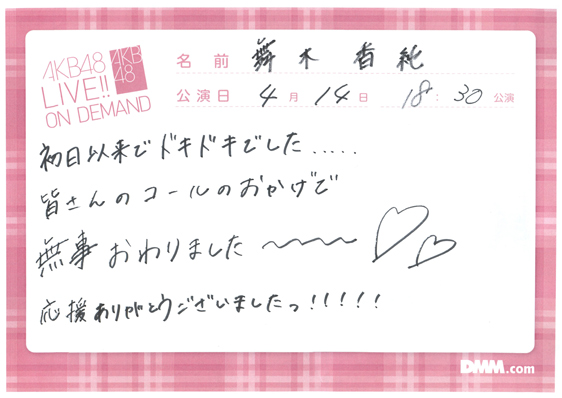 AKB48
LIVE!!
ON DEMAND
AKB
48
名前 舞木 香純
公演日 4月14日 18:30公演
初日以来でドキドキでした.....
皆さんのコールのおかげで
無事おわりました〜〜〜♡♡
応援ありがとうございましたっ!!!!!
DMM.com